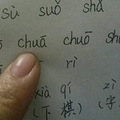 sù suǒ shā
chuā chuō shu
rì
xià qí zì
(下 棋) (字